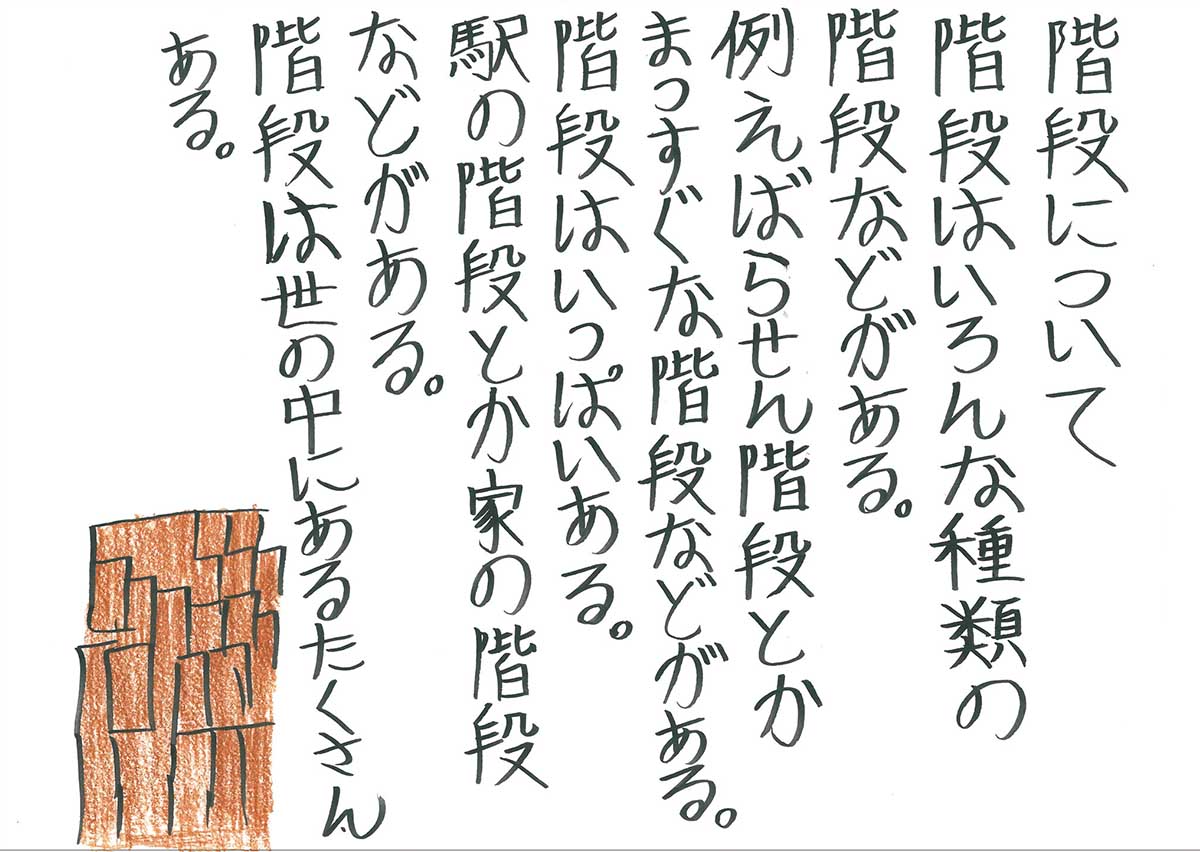 階段について
階段はいろんな種類の
階段などがある。
例えばらせん階段とか
まっすぐな階段などがある。
階段はいっぱいある。
駅の階段とか家の階段
などがある。
階段は世の中にあるたくさん
ある。